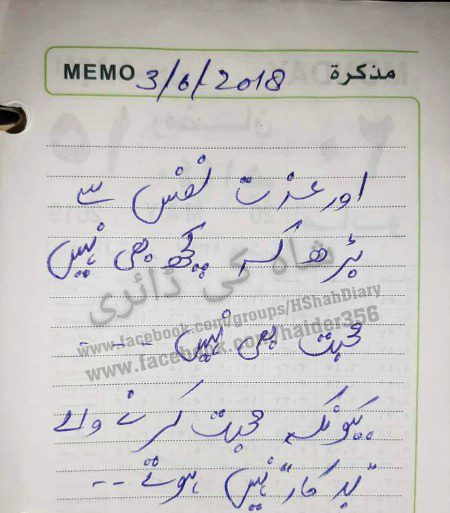 MEMO 3/6/2018 مذكرة
اور عزت نفس سے
بڑھ کر کچھ بھی نہیں
شاہ کی ڈائری
www.facebook.com/groups/HShahDiary
www.facebook.com/haider356
محبت بھی نہیں ----
کیونکہ محبت کرنے والے
"بدکار" نہیں ہوتے --